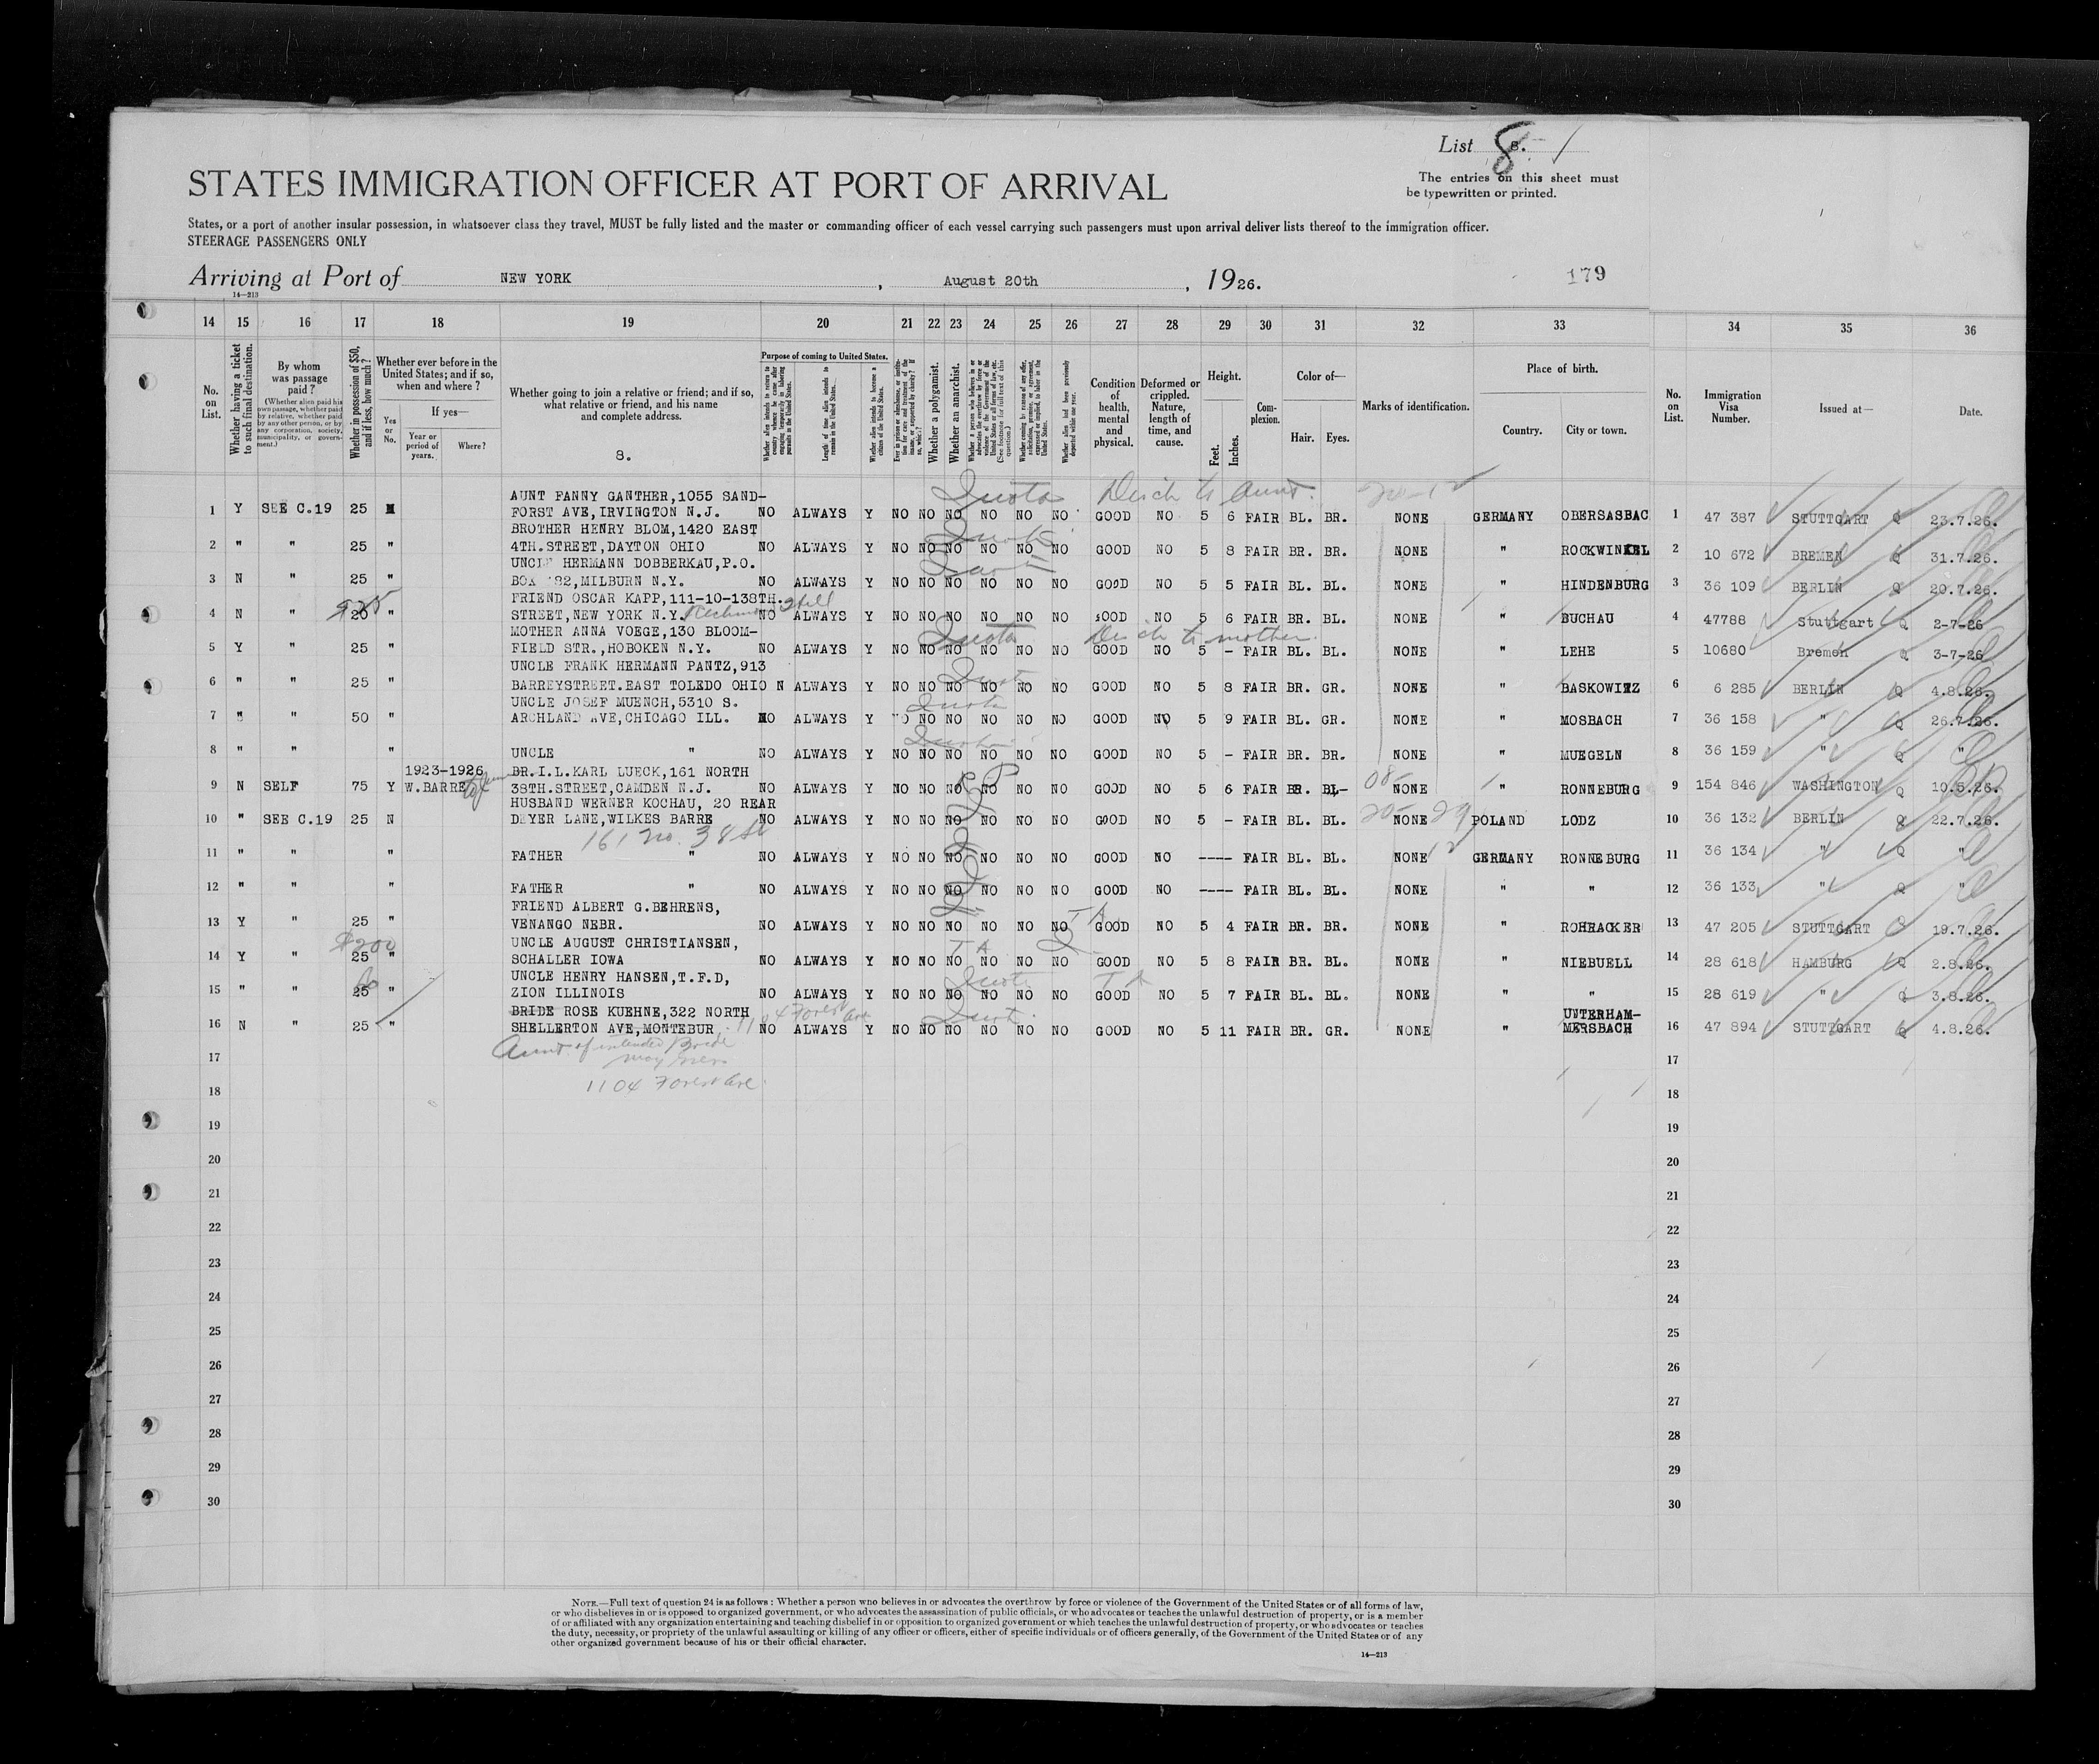 List 8.
The entries on this sheet must
be typewritten or printed.
STATES IMMIGRATION OFFICER AT PORT OF ARRIVAL
States, or a port of another insular possession, in whatsoever class they travel, MUST be fully listed and the master or commanding officer of each vessel carrying such passengers must upon arrival deliver lists thereof to the immigration officer.
STEERAGE PASSENGERS ONLY
Arriving at Port of NEW YORK, August 20th, 1926.
179
14—213
14 15 16 17 18 19 20 21 22 23 24 25 26 27 28 29 30 31 32 33 34 35 36
No. on List.
Whether having a ticket to such final destination.
By whom was passage paid?
(Whether alien paid his own passage, whether paid by relative, whether paid by any other person, or by any corporation, society, municipality, or government.)
Whether in possession of $50, and if less, how much?
Whether ever before in the United States; and if so, when and where?
Yes or No.
If yes—
Year or period of years.
Where?
Whether going to join a relative or friend; and if so, what relative or friend, and his name and complete address.
8.
Purpose of coming to United States.
Whether alien intends to return to country whence he came after engaging temporarily in laboring pursuits in the United States.
Length of time alien intends to remain in the United States.
Whether alien intends to become a citizen of the United States.
Whether a polygamist.
Whether an anarchist.
Condition of health, mental and physical.
Deformed or crippled. Nature, length of time, and cause.
Height.
Feet. Inches.
Complexion.
Color of—
Hair. Eyes.
Marks of identification.
Place of birth.
Country. City or town.
No. on List.
Immigration Visa Number.
Issued at—
Date.
Quota Disch to Aunt. 20-12
AUNT FANNY GANTHER,1055 SAND-
1 Y SEE C.19 25 FORST AVE,IRVINGTON N.J. NO ALWAYS Y NO NO NO NO NO NO GOOD NO 5 6 FAIR BL. BR. NONE GERMANY OBERSASBAC 1 47 387 STUTTGART Q 23.7.26.
BROTHER HENRY BLOM,1420 EAST
2 " " 25 " 4TH.STREET,DAYTON OHIO NO ALWAYS Y NO NO NO NO NO NO GOOD NO 5 8 FAIR BR. BR. NONE " ROCKWINKEL 2 10 672 BREMEN Q 31.7.26.
UNCLE HERMANN DOBBERKAU,P.O.
3 N " 25 " BOX 82,MILBURN N.Y. NO ALWAYS Y NO NO NO NO NO NO GOOD NO 5 5 FAIR BL. BL. NONE " HINDENBURG 3 36 109 BERLIN Q 20.7.26.
FRIEND OSCAR KAPP,111-10-138TH.
4 N " 20 " STREET,NEW YORK N.Y. Richmond Hill NO ALWAYS Y NO NO NO NO NO NO GOOD NO 5 6 FAIR BR. BL. NONE " BUCHAU 4 47788 Stuttgart Q 2-7-26
MOTHER ANNA VOEGE,130 BLOOM-
Quota Disch to mother.
5 Y " 25 " FIELD STR.,HOBOKEN N.Y. NO ALWAYS Y NO NO NO NO NO NO GOOD NO 5 - FAIR BL. BL. NONE " LEHE 5 10680 Bremen Q 3-7-26
UNCLE FRANK HERMANN PANTZ,913
6 " " 25 " BARREYSTREET.EAST TOLEDO OHIO N ALWAYS Y NO NO NO NO NO NO GOOD NO 5 8 FAIR BR. GR. NONE " BASKOWITZ 6 6 285 BERLIN Q 4.8.26.
UNCLE JOSEF MUENCH,5310 S.
Quota
7 " " 50 " ARCHLAND AVE,CHICAGO ILL. NO ALWAYS Y NO NO NO NO NO NO GOOD NO 5 9 FAIR BL. GR. NONE " MOSBACH 7 36 158 " Q 26.7.26.
8 " " " UNCLE " NO ALWAYS Y NO NO NO NO NO NO GOOD NO 5 - FAIR BR. BR. NONE " MUEGELN 8 36 159 " Q "
1923-1926 BR.I.L.KARL LUECK,161 NORTH
9 N SELF 75 Y W.BARRE 38TH.STREET,CAMDEN N.J. NO ALWAYS Y NO NO NO NO NO NO GOOD NO 5 6 FAIR BR. BL- NONE " RONNEBURG 9 154 846 WASHINGTON Q 10.5.26.
HUSBAND WERNER KOCHAU, 20 REAR
10 " SEE C.19 25 N DEYER LANE,WILKES BARRE NO ALWAYS Y NO NO NO NO NO NO GOOD NO 5 - FAIR BL. BL. NONE POLAND LODZ 10 36 132 BERLIN Q 22.7.26.
161 No. 38 St
11 " " " FATHER " NO ALWAYS Y NO NO NO NO NO NO GOOD NO ---- FAIR BL. BL. NONE GERMANY RONNEBURG 11 36 134 " Q "
12 " " " FATHER " NO ALWAYS Y NO NO NO NO NO NO GOOD NO ---- FAIR BL. BL. NONE " " 12 36 133 " Q "
FRIEND ALBERT G.BEHRENS,
13 Y " 25 " VENANGO NEBR. NO ALWAYS Y NO NO NO NO NO NO GOOD NO 5 4 FAIR BR. BR. NONE " ROHRACKER 13 47 205 STUTTGART Q 19.7.26.
$200
UNCLE AUGUST CHRISTIANSEN,
14 Y " 25 " SCHALLER IOWA NO ALWAYS Y NO NO NO NO NO NO GOOD NO 5 8 FAIR BR. BL. NONE " NIEBUELL 14 28 618 HAMBURG Q 2.8.26.
UNCLE HENRY HANSEN,T.F.D,
15 " " 25 " ZION ILLINOIS NO ALWAYS Y NO NO NO NO NO NO GOOD NO 5 7 FAIR BL. BL. NONE " " 15 28 619 " Q 3.8.26.
BRIDE ROSE KUEHNE,322 NORTH UNTERHAM-
16 N " 25 " SHELLERTON AVE,MONTEBUR 1104 Forest Ave NO ALWAYS Y NO NO NO NO NO NO GOOD NO 5 11 FAIR BR. GR. NONE " MERSBACH 16 47 894 STUTTGART Q 4.8.26.
Aunt of intended Bride
1104 Forest Ave.
17 17
18 18
19 19
20 20
21 21
22 22
23 23
24 24
25 25
26 26
27 27
28 28
29 29
30 30
NOTE.—Full text of question 24 is as follows: Whether a person who believes in or advocates the overthrow by force or violence of the Government of the United States or of all forms of law,
or who disbelieves in or is opposed to organized government, or who advocates the assassination of public officials, or who advocates or teaches the unlawful destruction of property, or is a member
of or affiliated with any organization entertaining and teaching disbelief in or opposition to organized government or which teaches the unlawful destruction of property, or who advocates or teaches
the duty, necessity, or propriety of the unlawful assaulting or killing of any officer or officers, either of specific individuals or of officers generally, of the Government of the United States or of any
other organized government because of his or their official character.
14—213